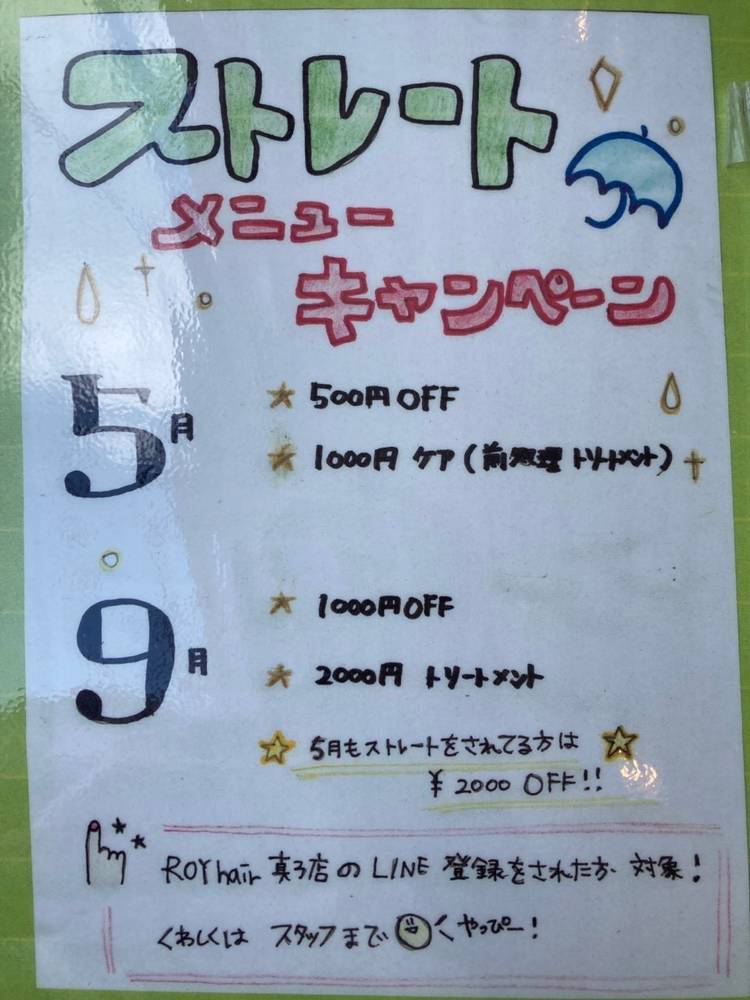 ストレート
メニュー
キャンペーン
5月
★ 500円OFF
★ 1000円 ケア(前処理 トリートメント)
9月
★ 1000円OFF
★ 2000円 トリートメント
☆ 5月もストレートをされてる方は ☆
¥2000 OFF!!
ROY hair 真弓店の LINE 登録をされた方 対象!
くわしくは スタッフまで やっぴー!